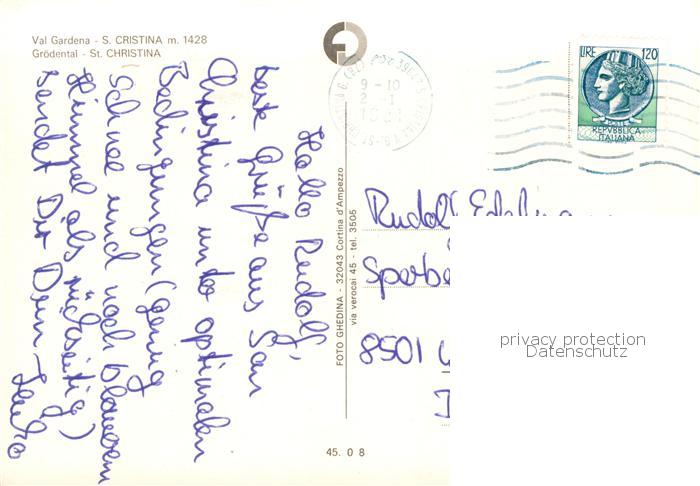 Val Gardena - S. CRISTINA m. 1428
Grödental - St. CHRISTINA
Hallo Rudolf,
beste Grüße aus San
Christina unter optimalen
Bedingungen (genug
Schnee und noch blauem
Himmel als rückseitig)
sendet Dir Dein
FOTO GHEDINA - 32043 Cortina d'Ampezzo
via verocai 45 - tel. 3505
45. 0 8
9 - 10
LIRE 120
POSTE
REPVBBLICA
ITALIANA
Rudolf
8501
privacy protection
Datenschutz